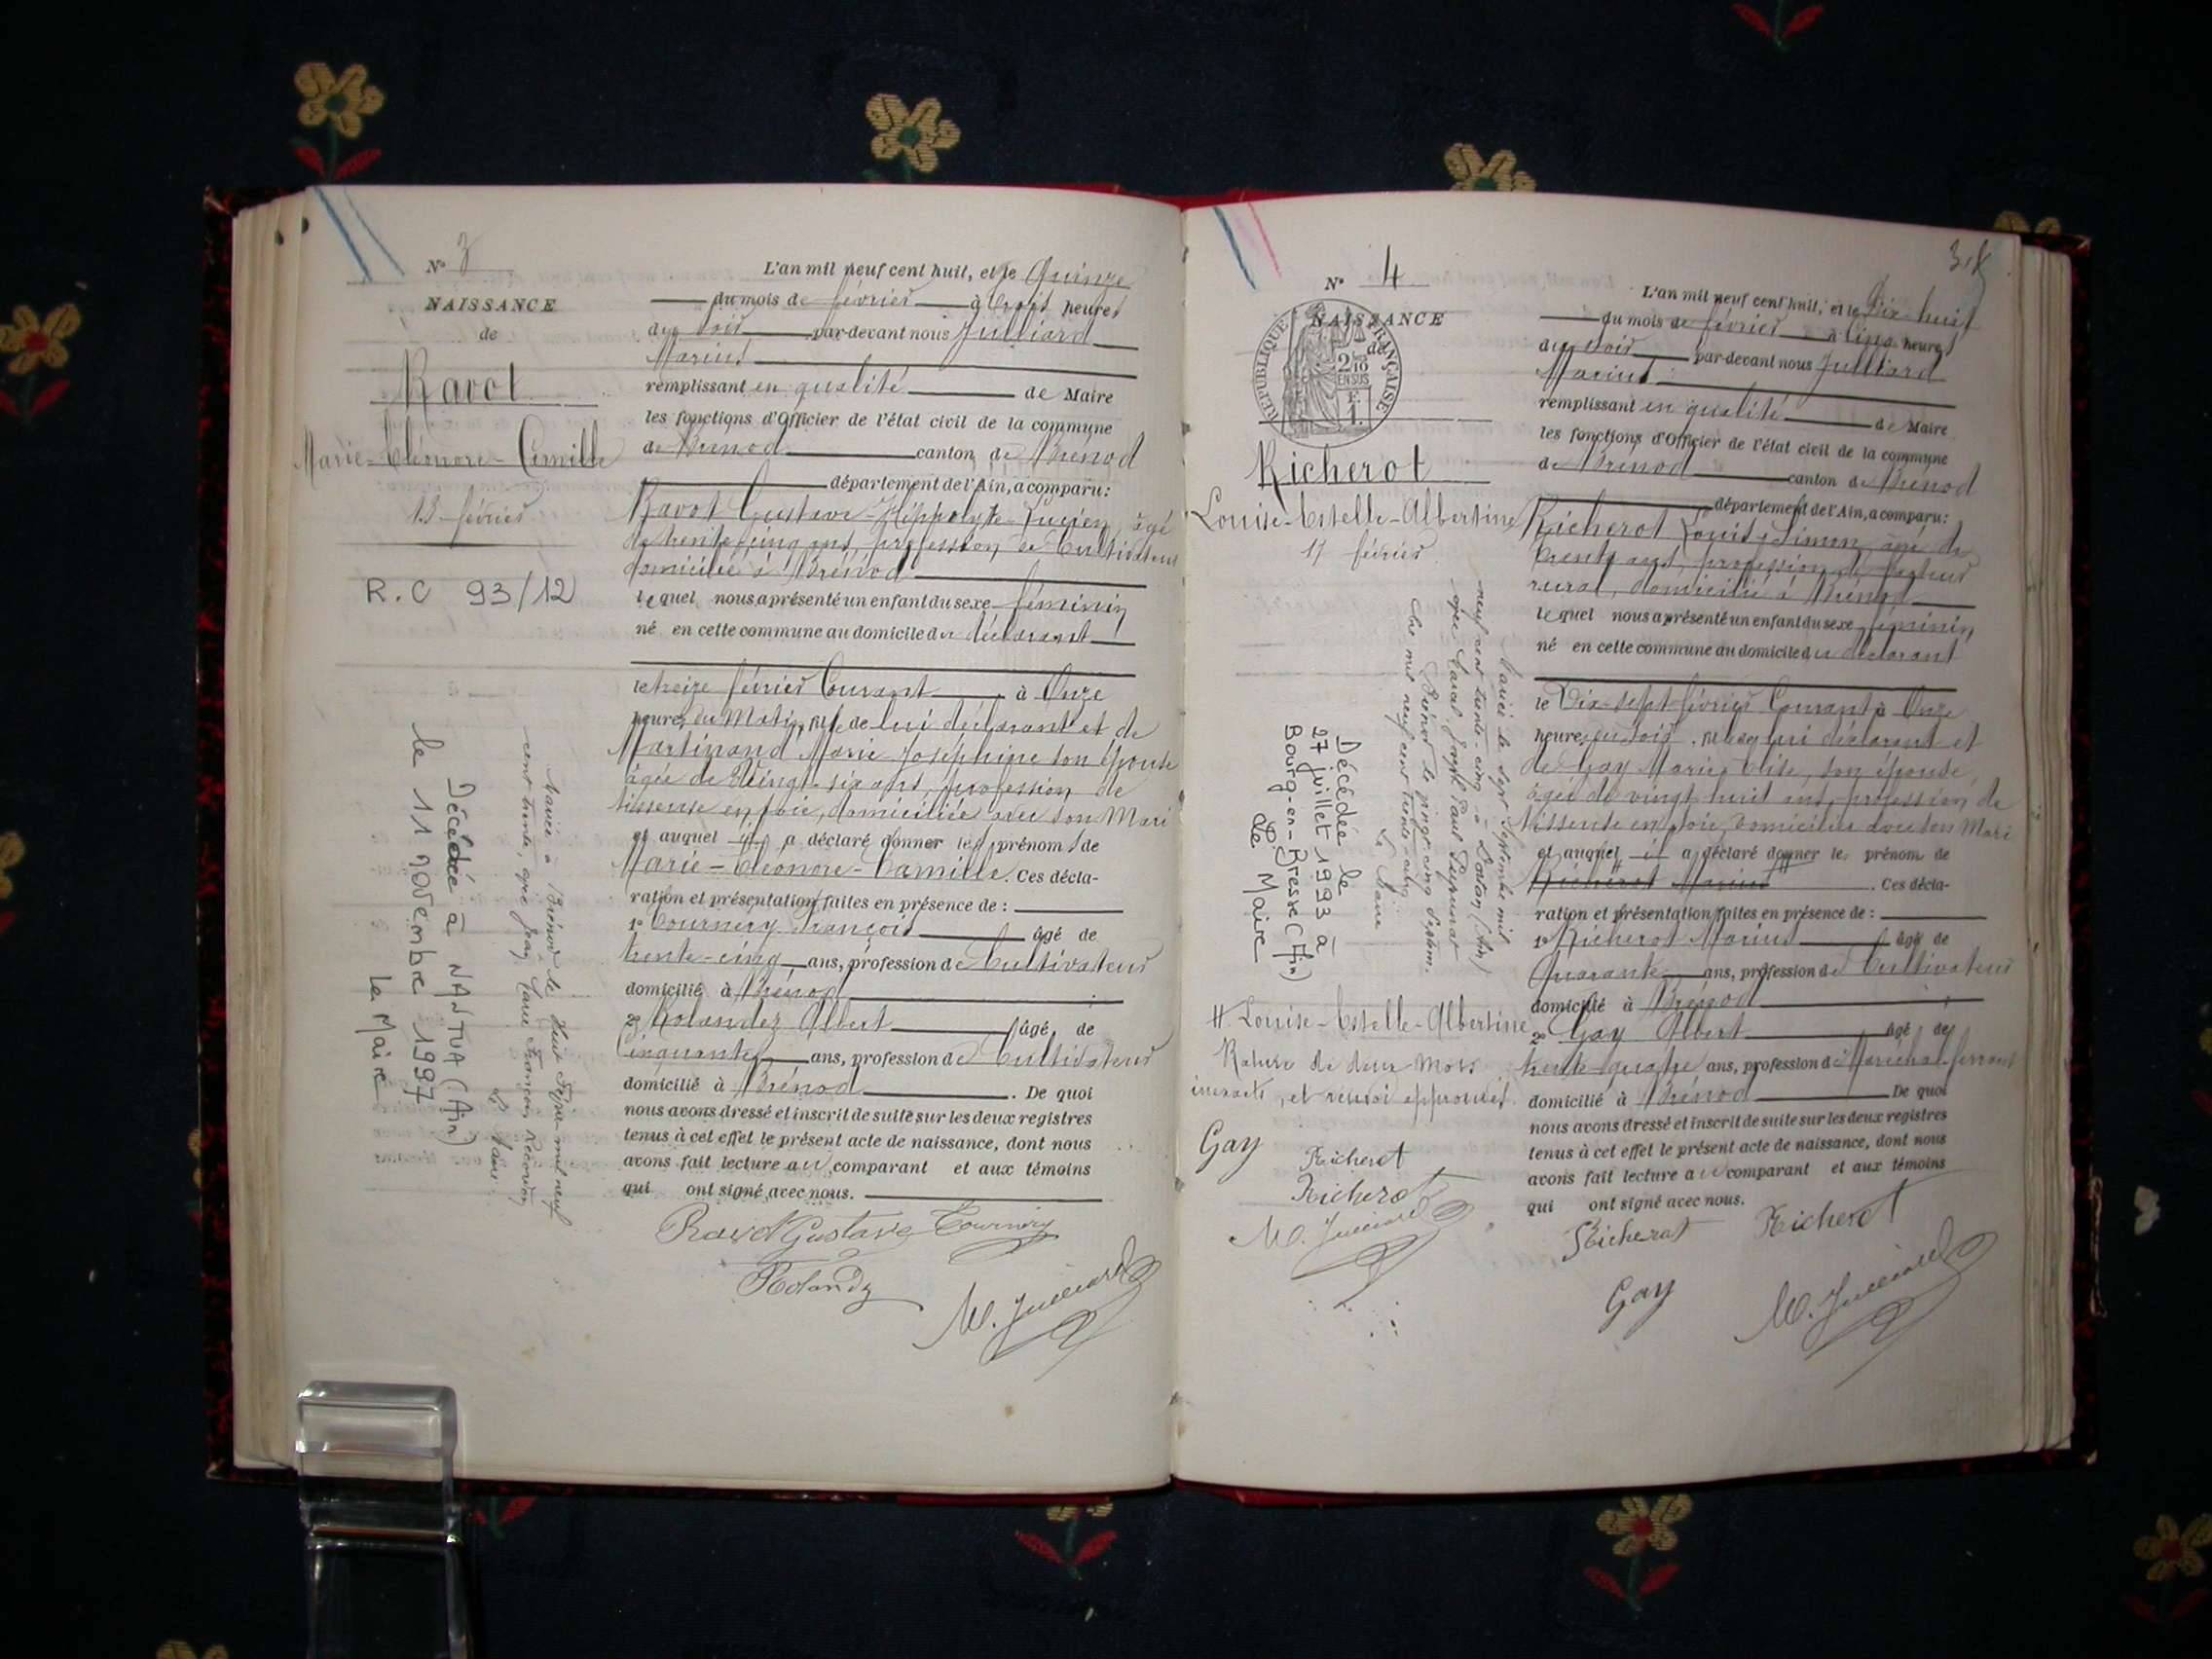 N° 3
NAISSANCE
de
Ravot
Marie-Eléonore-Camille
13 février
R.C 93/12
Mariée à Brénod le huit Février mil neuf
cent trente, avec Jean François Recordon
Le Maire
Décédée à NANTUA (Ain)
le 11 novembre 1997
Le Maire
L'an mil neuf cent huit, et le Quinze
du mois de février à trois heures
du soir par-devant nous Julliard
Marius
remplissant en qualité de Maire
les fonctions d'Officier de l'état civil de la commune
de Brénod canton de Brénod
département de l'Ain, a comparu:
Ravot Gustave-Hippolyte-Lucien, âgé
de trente cinq ans, profession de Cultivateur
domicilié à Brénod
lequel nous a présenté un enfant du sexe féminin
né en cette commune au domicile du déclarant
le treize février Courant à Onze
heures du Matin, fille de lui déclarant et de
Martinand Marie Joséphine son épouse
âgée de Vingt-six ans, profession de
tisseuse en soie, domiciliée avec son Mari
et auquel il a déclaré donner les prénoms de
Marie-Eléonore-Camille. Ces décla-
ration et présentation faites en présence de :
1° Tournery François âgé de
trente-cinq ans, profession de Cultivateur
domicilié à Brénod
2° Rolandez Albert âgé de
Cinquante ans, profession de Cultivateur
domicilié à Brénod. De quoi
nous avons dressé et inscrit de suite sur les deux registres
tenus à cet effet le présent acte de naissance, dont nous
avons fait lecture au comparant et aux témoins
qui ont signé avec nous.
Ravot Gustave Tournery
Rolandz M. Julliard
N° 4
NAISSANCE
de
RÉPUBLIQUE FRANÇAISE
2/10 EN SUS
F. 1.
Richerot
Louise-Estelle-Albertine
17 février
Mariée le sept Septembre mil
neuf cent trente-cinq à (Ain)
avec Joseph Paul
Brénod le vingt cinq Septem-
bre mil neuf cent trente-cinq
Le Maire
Décédée le
27 juillet 1993 à
Bourg-en-Bresse (Ain)
Le Maire
# Louise-Estelle-Albertine
Rature de deux mots
inexacts, et renvoi approuvés.
Gay Richerot
Richerot
M. Julliard
L'an mil neuf cent huit, et le Dix-huit
du mois de février à Cinq heures
du soir par-devant nous Julliard
Marius
remplissant en qualité de Maire
les fonctions d'Officier de l'état civil de la commune
de Brénod canton de Brénod
département de l'Ain, a comparu:
Richerot Louis Simon, âgé de
trente ans, profession de facteur
rural, domicilié à Brénod
lequel nous a présenté un enfant du sexe féminin
né en cette commune au domicile du déclarant
le Dix-sept février Courant à Onze
heures du Soir, fille de lui déclarant et
de Gay Marie Elise, son épouse,
âgée de vingt huit ans, profession de
tisseuse en soie, domiciliée avec son Mari
et auquel il a déclaré donner les prénom de
Richerot Marius #. Ces décla-
ration et présentation faites en présence de :
1° Richerot Marius âgé de
Quarante ans, profession de Cultivateur
domicilié à Brénod
2° Gay Albert âgé de
trente-quatre ans, profession de Maréchal-ferrant
domicilié à Brénod De quoi
nous avons dressé et inscrit de suite sur les deux registres
tenus à cet effet le présent acte de naissance, dont nous
avons fait lecture au comparant et aux témoins
qui ont signé avec nous.
Richerot Richerot
Gay M. Julliard